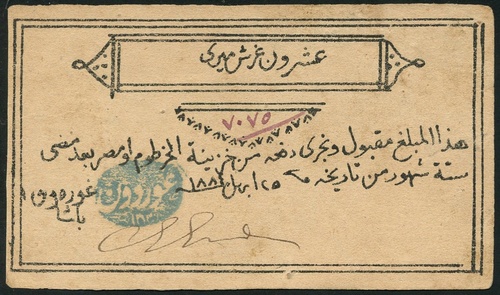 عشرون غرش ميرى
٧٠٧٥
هذا المبلغ مقبول وتجرى دفعه من خزينة الخرطوم او مصر بعد مضى
ستة شهور من تاريخه ٢٥ ابريل ١٨٨٤
غوردون
باشا